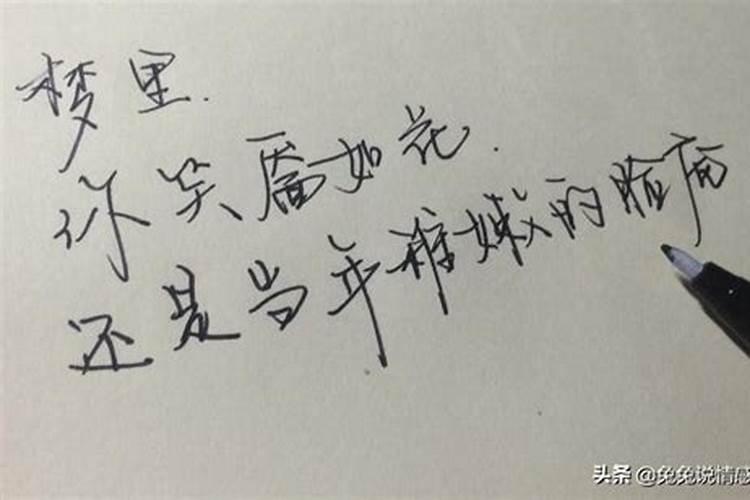 梦里.
你笑靥如花.
还是当年稚嫩的脸庞
头条 @兔兔说情感